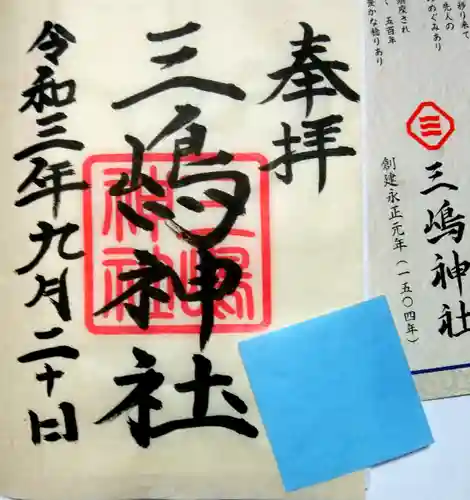 奉拝
三嶋神社
令和三年九月二十日
三嶋神社
移り来て
先人の
めぐみあり
五百年
豊かな稔りあり
三
三嶋神社
創建永正元年(一五〇四年)